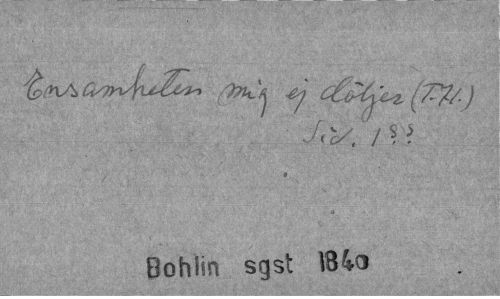 Ensamheten mig ej döljer (T.H.)
Sid. 1??
Bohlin sgst 1840